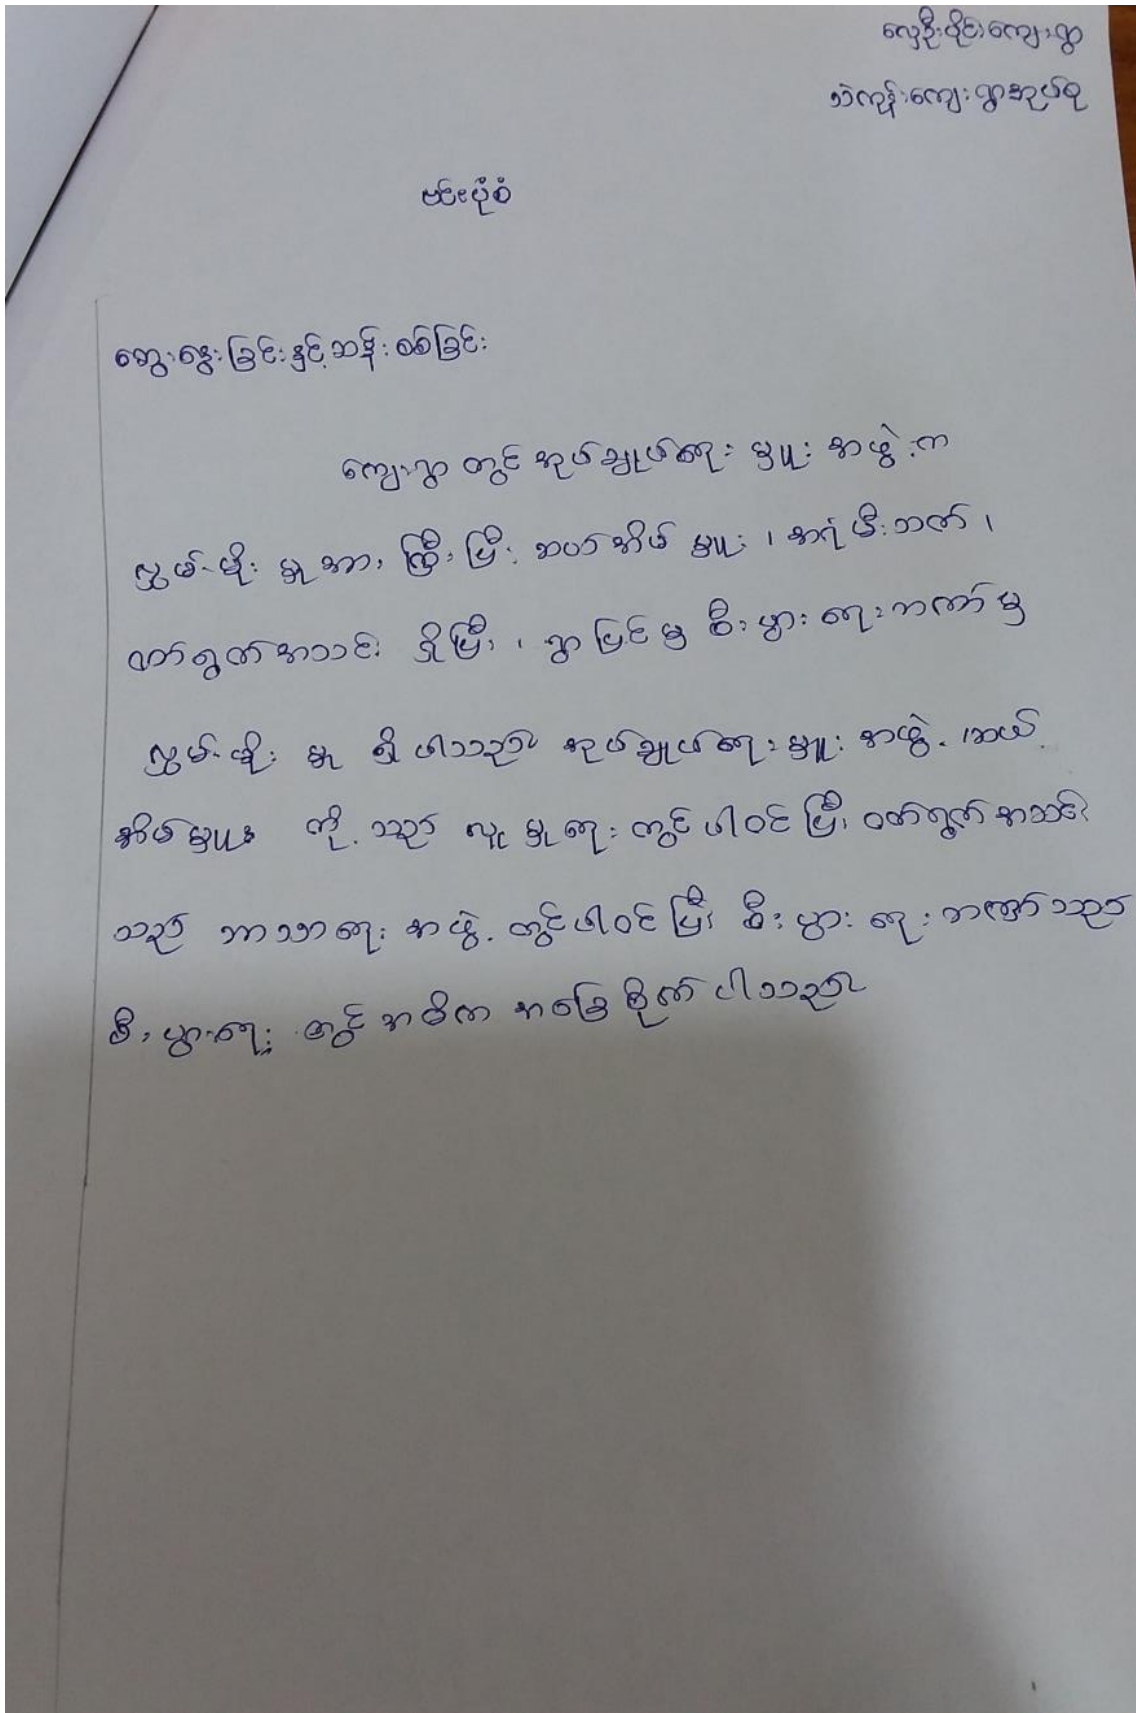 လှေဦးပိုင်းကျေးရွာ
သဲကုန်းကျေးရွာအုပ်စု
ဗင်းပုံစံ
ဆွေးနွေးခြင်းနှင့်ဆန်းစစ်ခြင်း
ကျေးရွာ တွင် အုပ်ချုပ်ရေး မှူး အဖွဲ့ က
လွှမ်းမိုး မှု အား ကြီး ပြီး ဆယ်အိမ် မှူး ၊ အရံမီးသတ် ၊
ဝတ်ရွတ်အသင်း ရှိပြီး ၊ ရွာ ပြင်မှ စီး ပွား ရေး ဘဏ်မှ
လွှမ်းမိုး မှု ရှိ ပါသည်။ အုပ်ချုပ်ရေး မှူး အဖွဲ့ ၊ ဆယ်
အိမ်မှူး တို့ သည် လူ မှု ရေး တွင် ပါဝင် ပြီး ဝတ်ရွတ် အသင်း
သည် ဘာသာရေး အဖွဲ့ တွင်ပါဝင် ပြီး စီး ပွား ရေး ဘဏ်သည်
စီး ပွားရေး တွင် အဓိက အခြေ စိုက် ပါသည်။